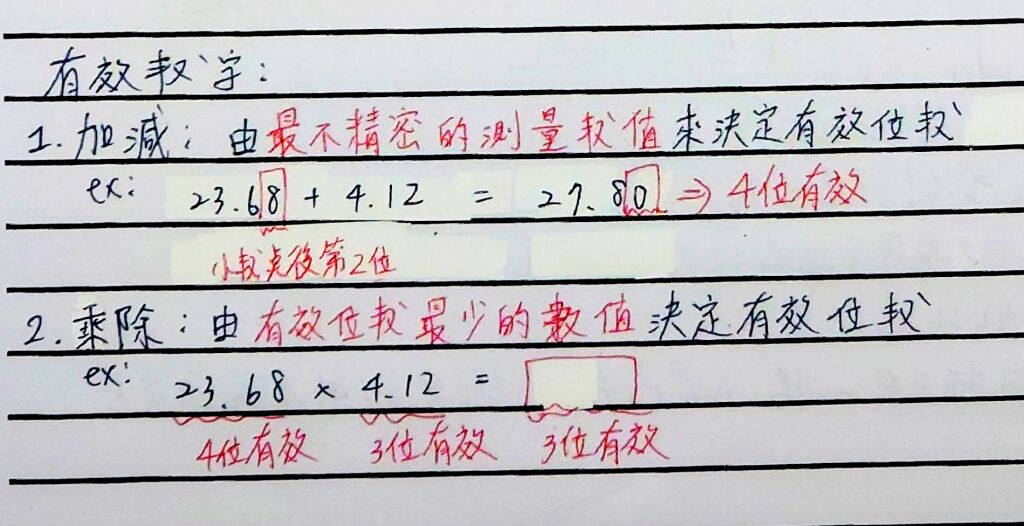 有效數字：
1. 加減：由最不精密的測量數值來決定有效位數
ex: 23.68 + 4.12 = 27.80 ⇒ 4位有效
小數点後第2位
2. 乘除：由有效位數最少的數值決定有效位數
ex: 23.68 × 4.12 =
4位有效 3位有效 3位有效